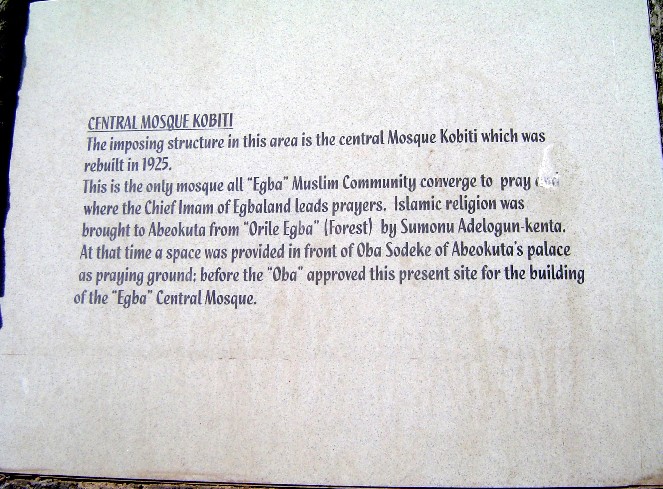 CENTRAL MOSQUE KOBITI
The imposing structure in this area is the central Mosque Kobiti which was
rebuilt in 1925.
This is the only mosque all "Egba" Muslim Community converge to pray
where the Chief Imam of Egbaland leads prayers. Islamic religion was
brought to Abeokuta from "Orile Egba" (Forest) by Sumonu Adelogun-kenta.
At that time a space was provided in front of Oba Sodeke of Abeokuta's palace
as praying ground; before the "Oba" approved this present site for the building
of the "Egba" Central Mosque.